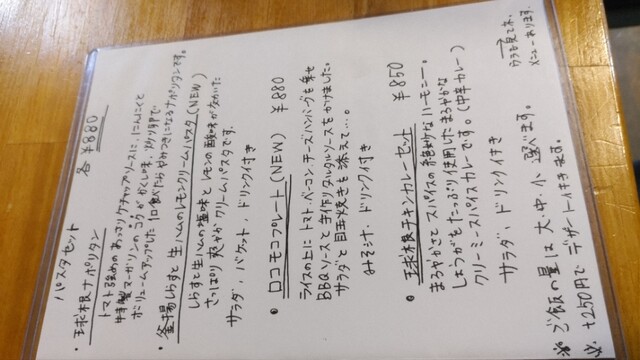 パスタセット 各 ¥880
・球根ナポリタン
トマト強めのあっさりケチャップソースに、にんにくと
特製マーガリンのコクがかくし味、炒り卵で
ボリュームアップした 1口食べたらやみつきになるナポリタンです。
・釜揚しらすと生ハムのレモンクリームパスタ(NEW)
しらすと生ハムの塩味とレモンの酸味が交いた
さっぱり爽やかクリームパスタです。
サラダ、バケット、ドリンク付き
・ロコモコプレート(NEW) ¥880
ライスの上にトマト、ベーコン、チーズハンバーグを乗せ
BBQソースと手作りタルタルソースをかけました。
サラダと目玉焼きも添えて…。
みそ汁、ドリンク付き
・球根チキンカレーセット ¥850
まろやかさとスパイスの絶妙なハーモニー。
しょうがをたっぷり使用したまろやかな
クリーミースパイスカレーです。(中辛カレー)
サラダ、ドリンク付き
※ご飯の量は大、中、小 選べます。
※+250円でデザート付きます。
→
ウラも見てネ、
メニューあります。